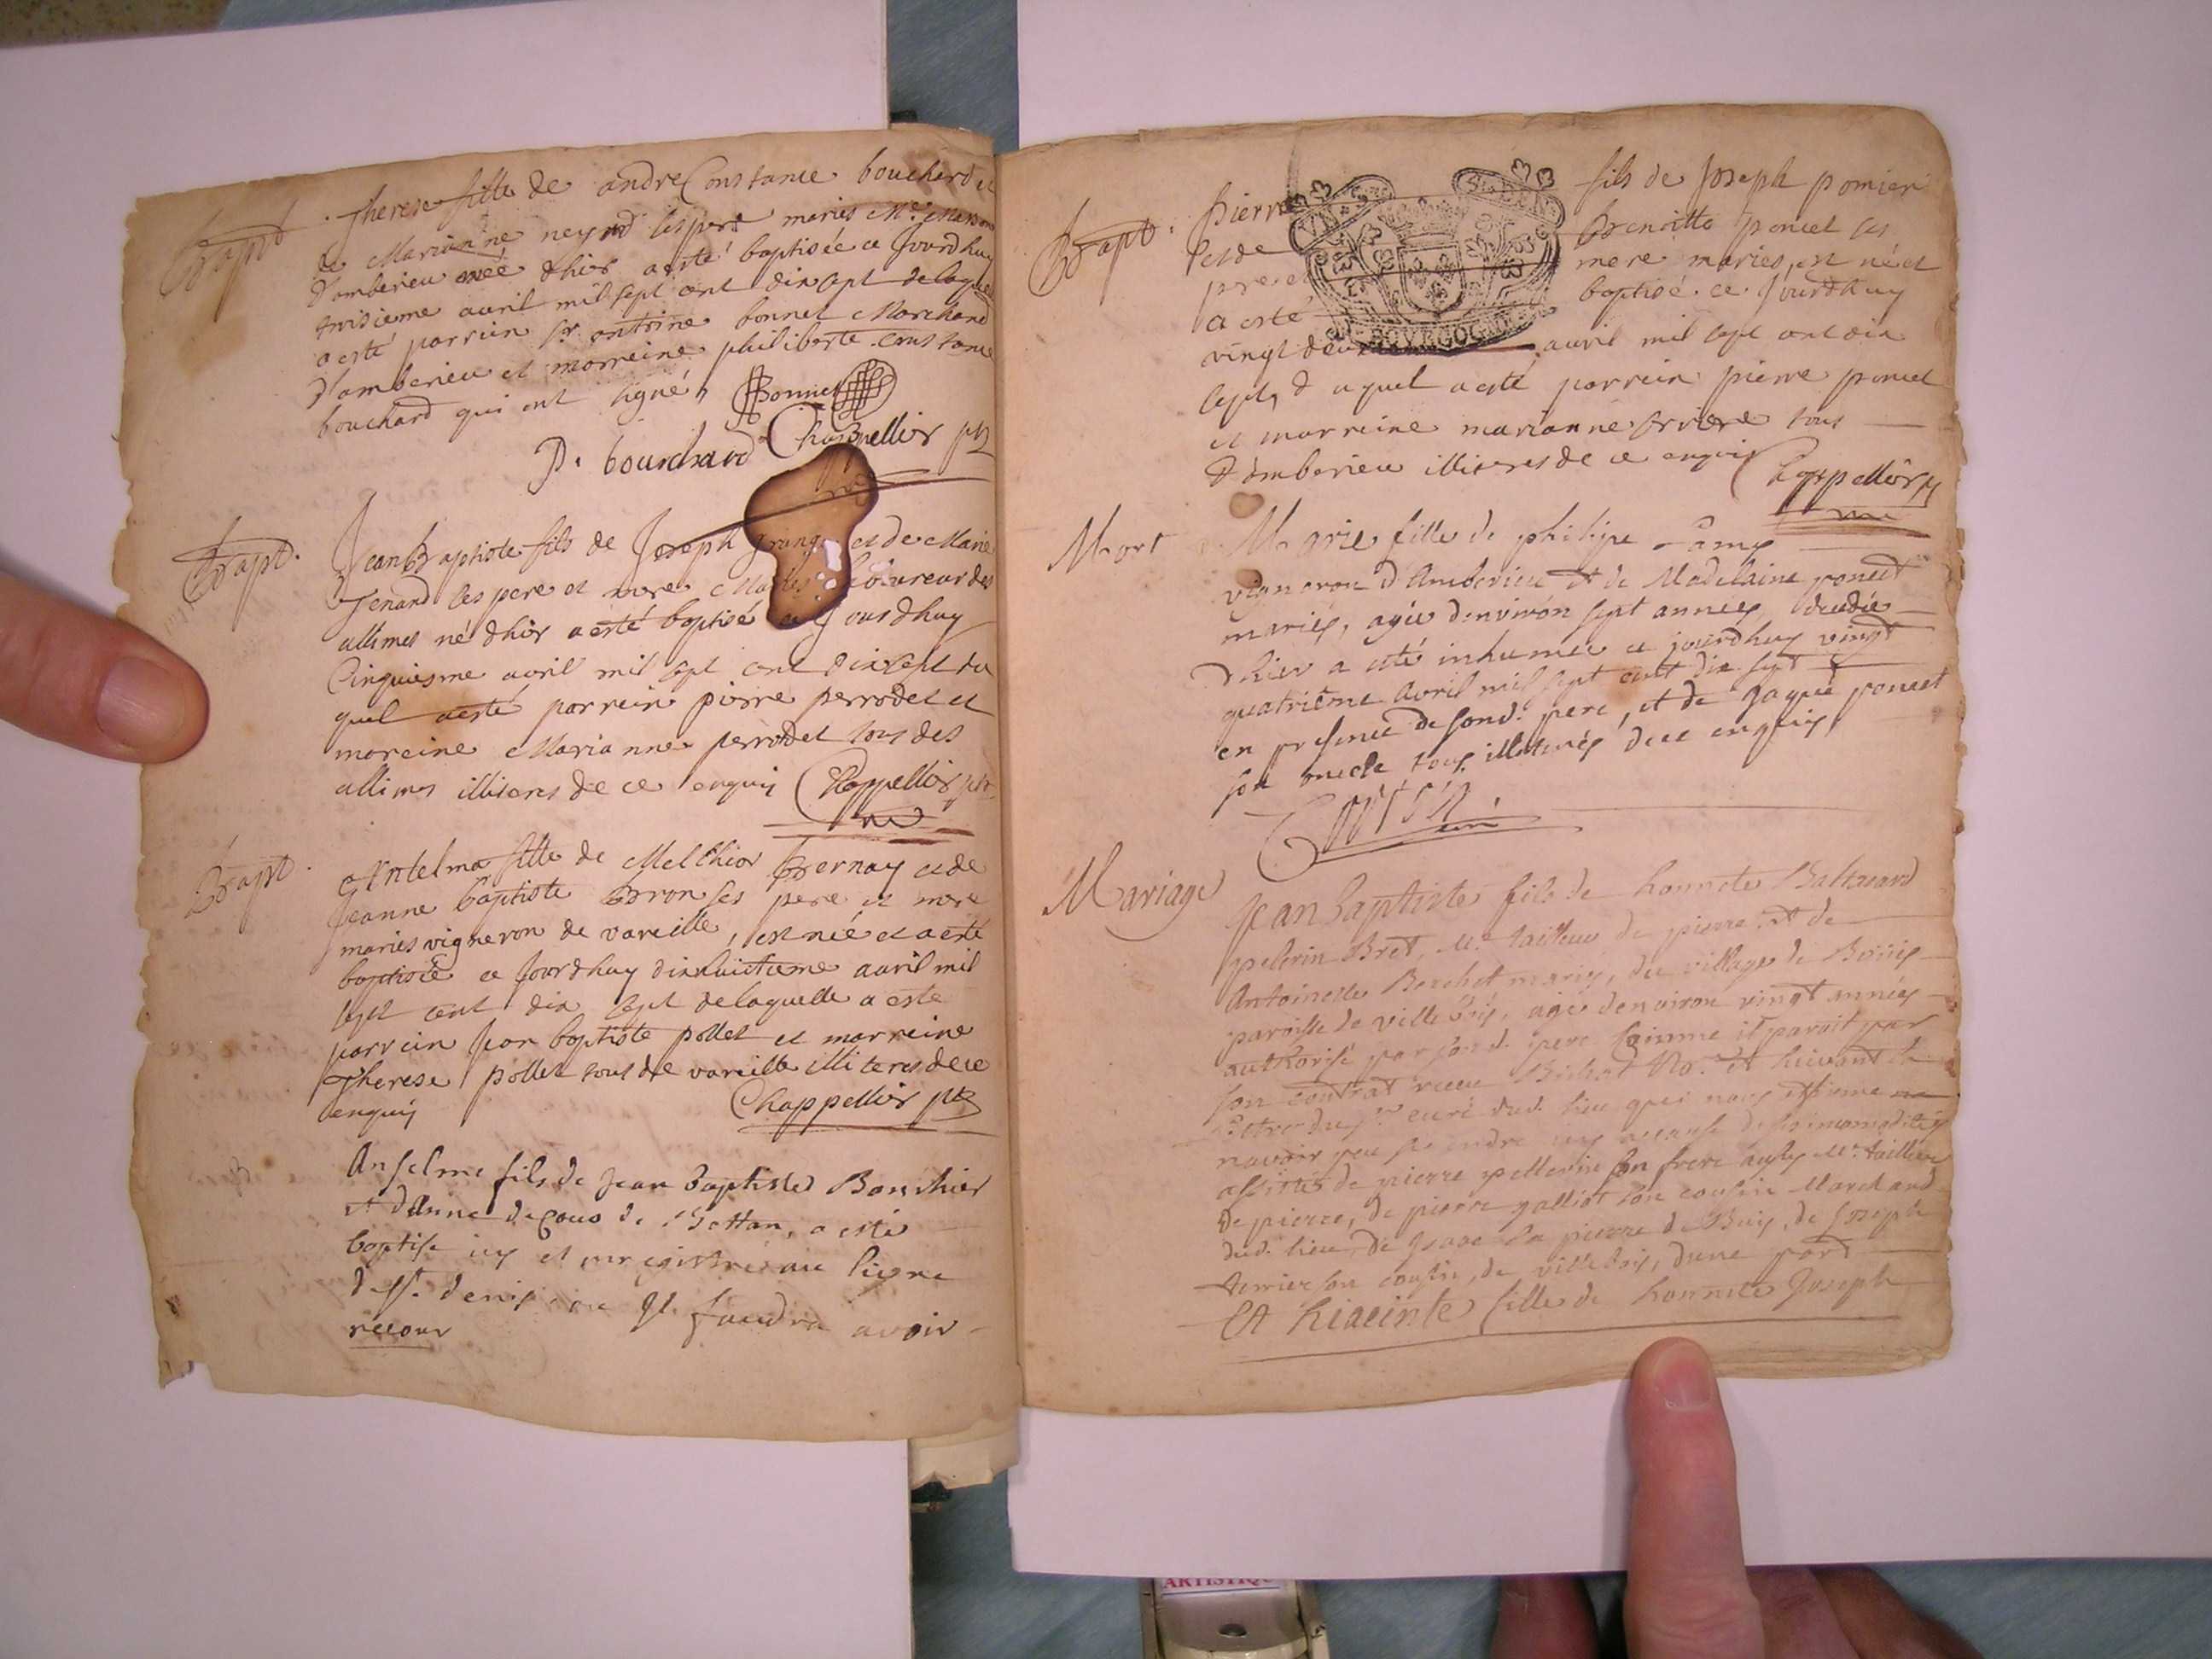 Bapt. Therese fille de andre Constance bouchard et
de Marianne neyrod ses pere maries Me Masson
d'amberieu née dhier a esté baptisée ce Jourdhuy
troisieme avril mil sept cent dix sept de laquelle
a esté parrein Sr. antoine bonnet Marchand
d'amberieu et marreine philiberte constance
bouchard qui ont signé, Bonnet
P. bouchard Chappellier ptr
Bapt. Jean Baptiste fils de Joseph grange et de Marie
Jenard ses pere et mere Maries laboureur des
allimes né dhier a esté baptisé ce Jourdhuy
Cinquiesme avril mil sept cent dix sept du
quel a esté parrein pierre perrodet et
mareine Marianne perrodet tous des
allimes illiteres de ce enquis Chappellier ptr
Bapt. Antelma fille de Melchior Bernay et de
Jeanne baptiste Bron ses pere et mere
maries vigneron de vareille, est née et a esté
baptisée ce Jourdhuy dixhuictieme avril mil
sept cent dix sept de laquelle a este
parrein Jean baptiste pollet et marreine
Therese pollet tous de vareille illiteres de ce
enquis Chappellier ptr
Anselme fils de Jean baptiste Bouchier
et d'Anne de Bettan, a esté
baptise icy et enregistré au livre
de St. denis, ou Il faudra avoir
recour
Bapt. Pierre fils de Joseph pomier
et de Benoitte poncet ses
pere et mere maries, est né et
a esté baptisé ce Jourdhuy
vingt deux avril mil sept cent dix
sept, d uquel a esté parrein pierre poncet
et marreine marianne tous
d'amberieu illiteres de ce enquis Chappellier
Mort Marie fille de philipe Lamy
vigneron d'Amberieu et de Madelaine poncet
mariés, agée d'environ sept années, decedée
d'hier a esté inhumée ce jourdhuy vingt
quatriéme Avril mil sept cent dix sept
en presence de sond. pere, et de Jaque poncet
son oncle tous illiterés de ce enquis,
Mariage Jean baptiste fils de honnete Baltazard
pelerin Bret, Me. tailleur de pierre, et de
Antoinette Berchet mariés, du village de Bouis
paroisse de ville bois, agé denviron vingt années
authorisé par sond. pere comme il paroit par
son contrat receu Bichat No.re et suivant la
lettre du Sr. curé dud. lieu qui nous affirme
navoir peu se rendre icy a cause de ses incomodités
assisté de pierre pellerin son frere aussy Me. tailleur
de pierre, de pierre galliot son cousin Marchand
dud. lieu, de la pierre de Buis, de Joseph
terrier son cousin, de ville bois, d'une part
Et hiacinte fille de honnete Joseph
ARTISTIQUE